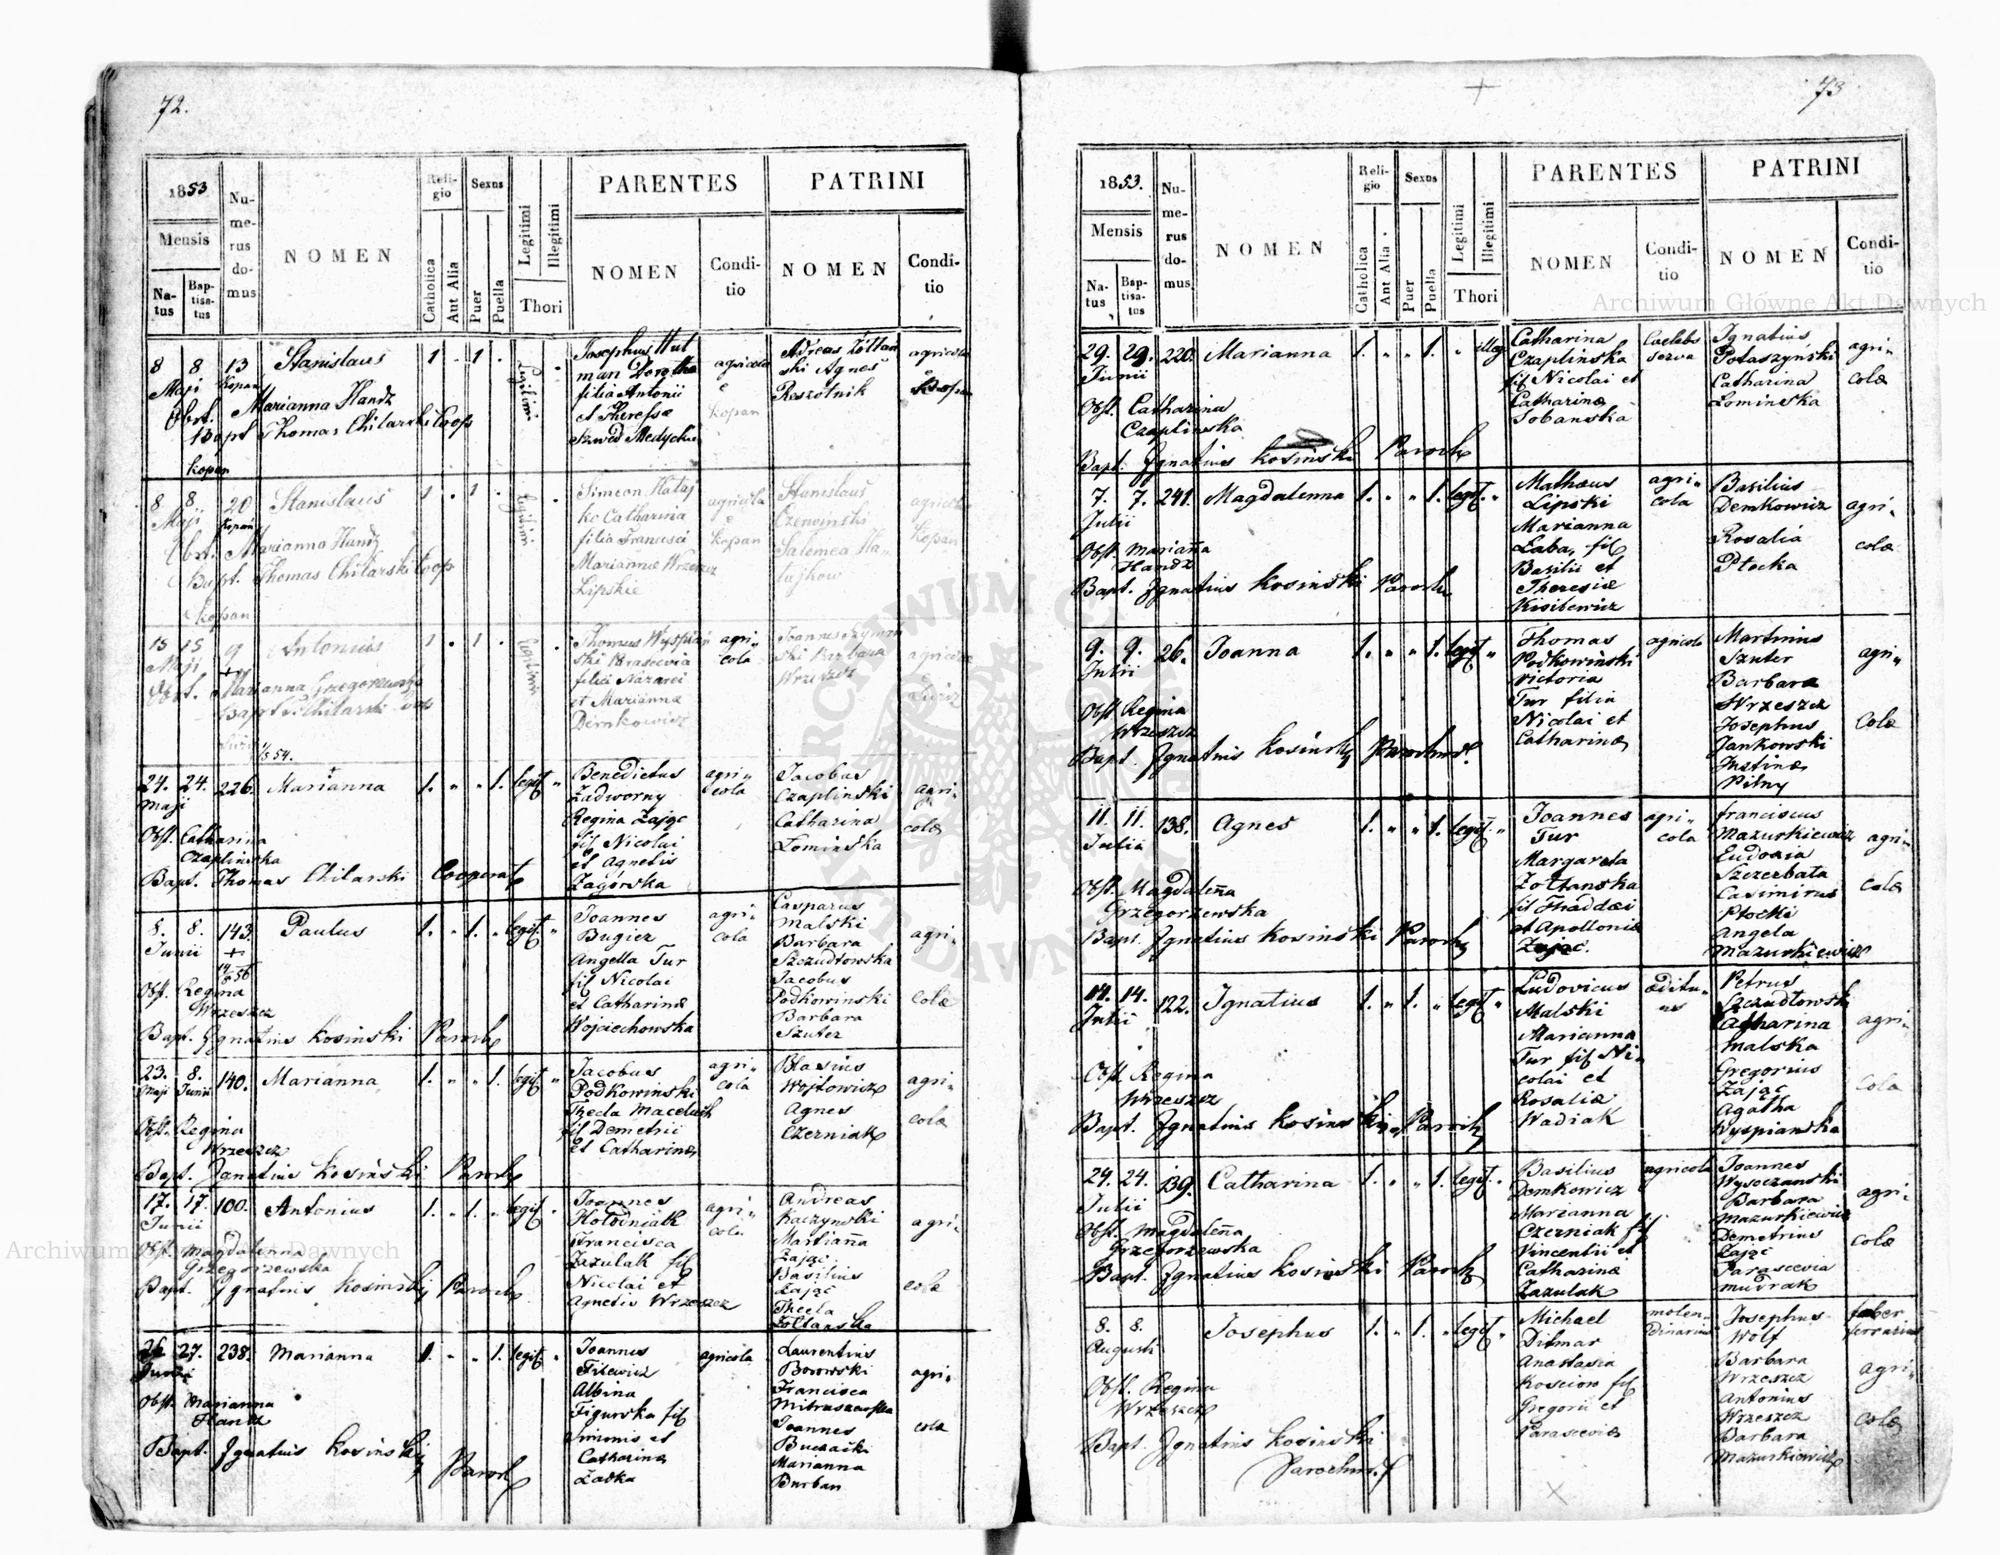 72.
1853
Mensis
Natus
Baptisatus
Numerus domus
NOMEN
Religio
Catholica
Aut Alia
Sexus
Puer
Puella
Legitimi
Illegitimi
Thori
PARENTES
NOMEN
Conditio
PATRINI
NOMEN
Conditio
8 8 13 Stanislaus 1 1
Maji
Kopan
Obst. Marianna Handz
Bapt Thomas Chilarski Coop
Kopan
Josephus Hut
man Dorothea
filia Antonii
et Theresæ
Szwed
agricola
Kopan
Andreas Zołtań
ski Agnes
Reszotnik
agricola
8 8 20 Stanislaus 1 1
Maji
Kopan
Obst. Marianna Handz
Bapt. Thomas Chilarski Coop
Kopan
Simeon Hataj
ko Catharina
filia Francisci
Mariannæ Wrzeszcz
Lipskie
agricola
Kopan
Stanislaus
Salomea Ha
tajkow
agricola
Kopan
15 15 9 Antonius 1 1
Maji
Obst. Marianna Grzegorzewska
Thomas Wyspiań
ski Parascevia
filia Nazarei
et Mariannæ
Demkowicz
agri
cola
Joannes Szyman
ski Barbara
Wrzeszcz
agricolæ
24. 24. 226. Marianna 1. 1. legit
Maji
Obst. Catharina
Czaplinska
Bapt. Thomas Chilarski Cooperat
Benedictus
Zadworny
Regina Zając
fil Nicolai
et Agnetis
Zagórska
agri
cola
Jacobus
Czaplinski
Catharina
Łominska
agri
colæ
8. 8. 143. Paulus 1. 1. legit
Junii
Obst. Regina
Wrzeszcz
Bapt. Ignatius Kosinski Paroch
Joannes
Bugiez
Angella Tur
fil Nicolai
et Catharinæ
Wojciechowska
agri
cola
Casparus
Malski
Barbara
Szczudłowska
Jacobus
Podkowinski
Barbara
Szuter
agri
colæ
23. 8. 140. Marianna 1. 1. legit
Maji Junii
Obst. Regina
Wrzeszcz
Bapt. Ignatius Kosiński Paroch
Jacobus
Podkowinski
Thecla
fil Demetrii
et Catharinæ
agri
cola
Blasius
Wojtowicz
Agnes
Czerniak
agri
colæ
17. 17. 100. Antonius 1. 1. legit
Junii
Obst. Magdalenna
Grzegorzewska
Bapt. Ignatius Kosinski Paroch
Joannes
Hołodniak
Francisca
Zazulak fil
Nicolai et
Agnetis Wrzeszcz
agri
cola
Andreas
Kaczynski
Marianna
Zając
Basilius
Zając
Thecla
Zołtanska
agri
colæ
26 27. 238. Marianna 1. 1. legit
Junii
Obst. Marianna
Handz
Bapt. Ignatius Kosinski
Paroch
Joannes
Filewicz
Albina
Figurska fil
Simonis et
Catharinæ
Zadka
agricola
Laurentius
Borowski
Francisca
Joannes
Buczacki
Marianna
Burban
agri
colæ
73
1853.
Mensis
Natus
Baptisatus
Numerus domus
NOMEN
Religio
Catholica
Aut Alia
Sexus
Puer
Puella
Legitimi
Illegitimi
Thori
PARENTES
NOMEN
Conditio
PATRINI
NOMEN
Conditio
29. 29. 220. Marianna 1. 1. illeg
Junii
Obst. Catharina
Czaplinska
Bapt. Ignatius Kosinski Paroch
Catharina
Czaplinska
fil Nicolai et
Catharinæ
Sobanska
Caelebs
serva
Ignatius
Potaszynski
Catharina
Lominska
agri
colæ
7. 7. 241. Magdalenna 1. 1. legit
Julii
Obst Marianna
Handz
Bapt. Ignatius Kosinski Paroch
Mathæus
Lipski
Marianna
Łaba, fil
Basilii et
Theresiæ
Kisilewicz
agri
cola
Basilius
Demkowicz
Rosalia
Płocka
agri
colæ
9. 9. 26. Joanna 1. 1. legit
Julii
Obst Regina
Wrzeszcz
Bapt. Ignatius Kosinski Parochus
Thomas
Podkowinski
Victoria
Tur filia
Nicolai et
Catharinæ
agricola
Martinus
Szuter
Barbara
Wrzeszcz
Josephus
Jankowski
Justina
Pilny
agri
colæ
11. 11. 138. Agnes 1. 1. legit
Julii
Obst. Magdalenna
Grzegorzewska
Bapt. Ignatius Kosinski Paroch
Joannes
Tur
Margareta
Zołtanska
fil Thaddæi
et Apolloniæ
Zając.
agri
cola
Franciscus
Mazurkiewicz
Eudoxia
Szczerbata
Casimirus
Płocki
Angela
Mazurkiewicz
agri
colæ
14. 14. 122. Ignatius 1. 1. legit
Julii
Obst. Regina
Wrzeszcz
Bapt. Ignatius Kosinski Paroch
Ludovicus
Malski
Marianna
Tur fil Ni
colai et
Rosaliæ
Wadiak
æditu
us
Petrus
Szczudłowski
Catharina
Malska
Gregorius
Zając
Agatha
Wyspianska
agri
colæ
24. 24. 139. Catharina 1. 1. legit
Julii
Obst. Magdalenna
Grzegorzewska
Bapt. Ignatius Kosinski Paroch
Basilius
Demkowicz
Marianna
Czerniak fil
Vincentii et
Catharinæ
Zazulak
agricola
Joannes
Wysoczanski
Barbara
Mazurkiewicz
Demetrius
Zając
Parascevia
Mudrak
agri
colæ
8. 8. Josephus 1. 1. legit
Augusti
Obst. Regina
Wrzeszcz
Bapt. Ignatius Kosinski
Parochus
Michael
Ditmar
Anastasia
Koscion fil
Gregorii et
Parasceviæ
molen
dinarius
Josephus
Wolf
Barbara
Wrzeszcz
Antonius
Wrzeszcz
Barbara
Mazurkiewicz
faber
ferrarius
agri
colæ
Archiwum Główne Akt Dawnych